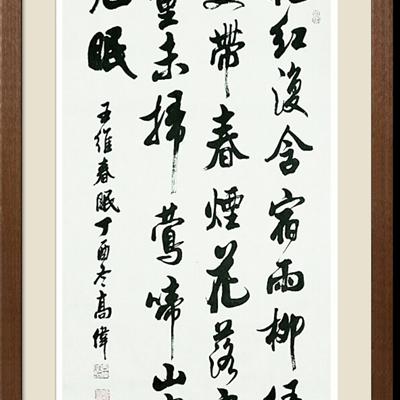 紅復含宿雨柳
帶春煙花落
童未掃鶯啼山
眠
王維春眠丁酉冬高偉